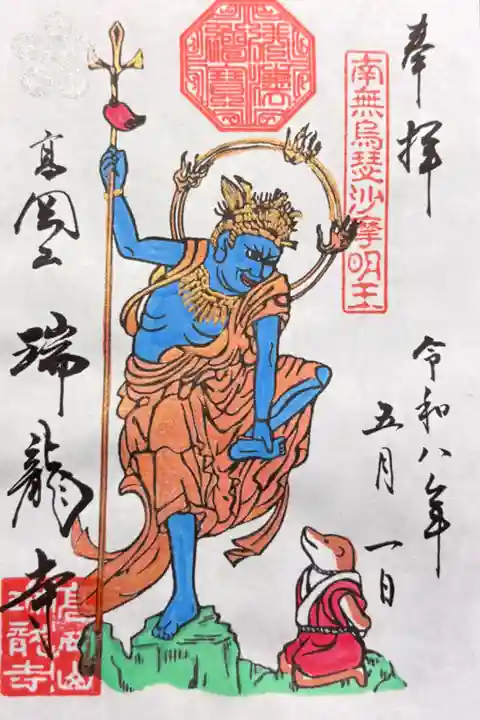 奉拝
南無烏瑟沙摩明王
令和八年
五月一日
高岡山
瑞龍寺
高岡山
瑞龍寺